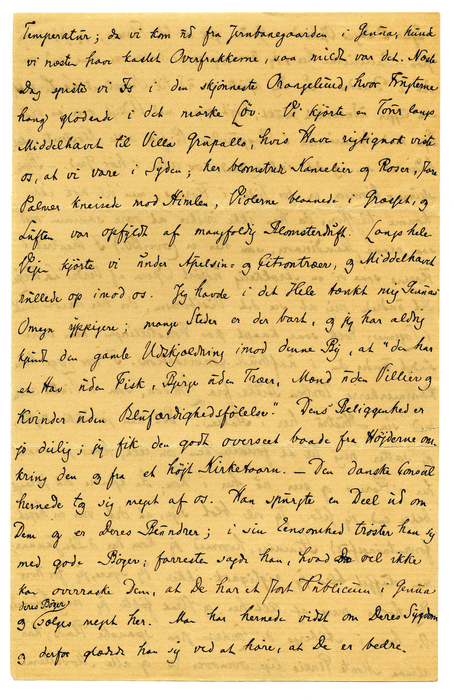 Temperatur; da vi kom ud fra Jernbanegaarden i Genua, kunde
vi næsten have kastet Overfrakkerne, saa mildt var det. Næste
Dag spiste vi Is i den skjønneste Orangelund, hvor Frugterne
hang glødende i det mørke Løv. Vi kjørte en Tour langs
Middelhavet til Villa Grupallo, hvis Have rigtignok viste
os, at vi vare i Syden; her blomstrede Kamelier og Roser,
Palmer kneisede mod Himlen, Violerne i Græsset, og
Luften var opfyldt af mangfoldig Blomsterduft. Langs hele
Veien kjørte vi under Apelsin- og Citrontræer, og Middelhavet
rullede op imod os. Jeg havde i det Hele tænkt mig Genuas
Omegn yppigere; mange Steder er der bart, og jeg har aldrig
den gamle Udskjældning imod denne By, at "den har
et Hav uden Fisk, Bjerge uden Træer, Mænd uden og
Kvinder uden Blufærdighedsfølelse." Dens Beliggenhed er
jo deilig; jeg fik den godt overseet baade fra Højderne om-
kring den og fra et højt Kirketaarn. — Den danske Consul
hernede tog sig meget af os. Han spurgte en Deel ud om
Dem og er Deres Beundrer; i sin Eensomhed trøster han sig
med gode Bøger; forresten sagde han, hvad vel ikke
kan overraske Dem, at De har et stort Publicum i Genua
deres Bøger
og sælges meget her. Man har hernede vidst om Deres Sygdom
og derfor glædede han sig ved at høre, at De er bedre.